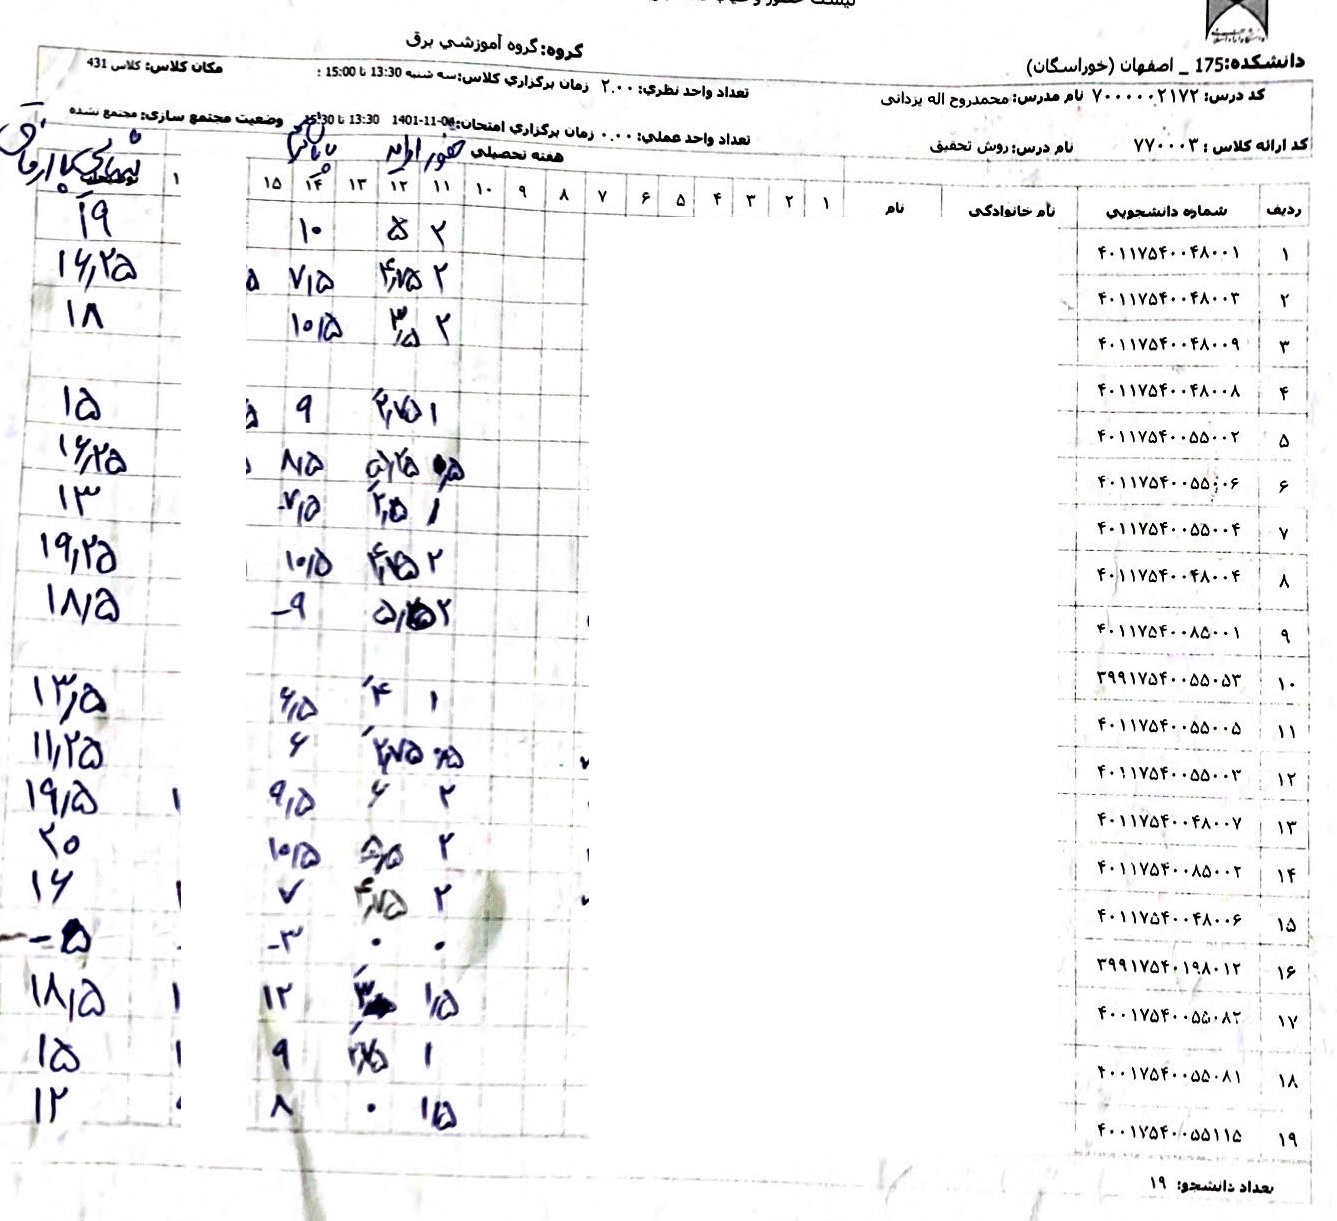 دانشکده:175 _ اصفهان (خوراسگان)
گروه: گروه آموزشي برق
کد درس: ۷۰۰۰۰۰۲۱۷۲ نام مدرس: محمدروح اله یزدانی
تعداد واحد نظري: ۲.۰۰ زمان برگزاري کلاس:سه شنبه 13:30 تا 15:00 :
مکان کلاس: کلاس 431
کد ارائه کلاس : ۷۷۰۰۰۳
نام درس: روش تحقیق
تعداد واحد عملي: ۰.۰۰ زمان برگزاري امتحان:
وضعیت مجتمع سازی: مجتمع نشده
هفته تحصیلی
حضور
ردیف شماره دانشجویي نام خانوادگی نام ۱ ۲ ۳ ۴ ۵ ۶ ۷ ۸ ۹ ۱۰ ۱۱ ۱۲ ۱۳ ۱۴ ۱۵ ۱
۱ ۴۰۱۱۷۵۴۰۰۴۸۰۰۱
۲ ۴۰۱۱۷۵۴۰۰۴۸۰۰۳
۳ ۴۰۱۱۷۵۴۰۰۴۸۰۰۹
۴ ۴۰۱۱۷۵۴۰۰۴۸۰۰۸
۵ ۴۰۱۱۷۵۴۰۰۵۵۰۰۲
۶ ۴۰۱۱۷۵۴۰۰۵۵۰۰۶
۷ ۴۰۱۱۷۵۴۰۰۵۵۰۰۴
۸ ۴۰۱۱۷۵۴۰۰۴۸۰۰۴
۹ ۴۰۱۱۷۵۴۰۰۸۵۰۰۱
۱۰ ۳۹۹۱۷۵۴۰۰۵۵۰۵۳
۱۱ ۴۰۱۱۷۵۴۰۰۵۵۰۰۵
۱۲ ۴۰۱۱۷۵۴۰۰۵۵۰۰۳
۱۳ ۴۰۱۱۷۵۴۰۰۴۸۰۰۷
۱۴ ۴۰۱۱۷۵۴۰۰۸۵۰۰۲
۱۵ ۴۰۱۱۷۵۴۰۰۴۸۰۰۶
۱۶ ۳۹۹۱۷۵۴۰۱۹۸۰۱۲
۱۷ ۴۰۰۱۷۵۴۰۰۵۵۰۸۲
۱۸ ۴۰۰۱۷۵۴۰۰۵۵۰۸۱
۱۹ ۴۰۰۱۷۵۴۰۰۵۵۱۱۵
۲ ۵ ۱۰ ۱۹
۲ ۴٫۷۵ ۷٫۵ ۱۶٫۲۵
۲ ۳٫۵ ۱۰٫۵ ۱۸
۱ ۲٫۷۵ ۹ ۱۵
۰٫۵ ۵٫۲۵ ۸٫۵ ۱۶٫۲۵
۱ ۲٫۵ ۷٫۵ ۱۳
۲ ۴٫۷۵ ۱۰٫۵ ۱۹٫۲۵
۲ ۹ ۱۸٫۵
۱ ۴ ۶٫۵ ۱۳٫۵
۰٫۵ ۲٫۷۵ ۶ ۱۱٫۲۵
۲ ۶ ۹٫۵ ۱۹٫۵
۲ ۵٫۵ ۱۰٫۵ ۲۰
۲ ۴٫۷۵ ۷ ۱۶
۰ ۰ ۳
۱٫۵ ۱۲ ۱۸٫۵
۱ ۲٫۷۵ ۹ ۱۵
۱٫۵ ۰ ۸ ۱۲
تعداد دانشجو: ۱۹